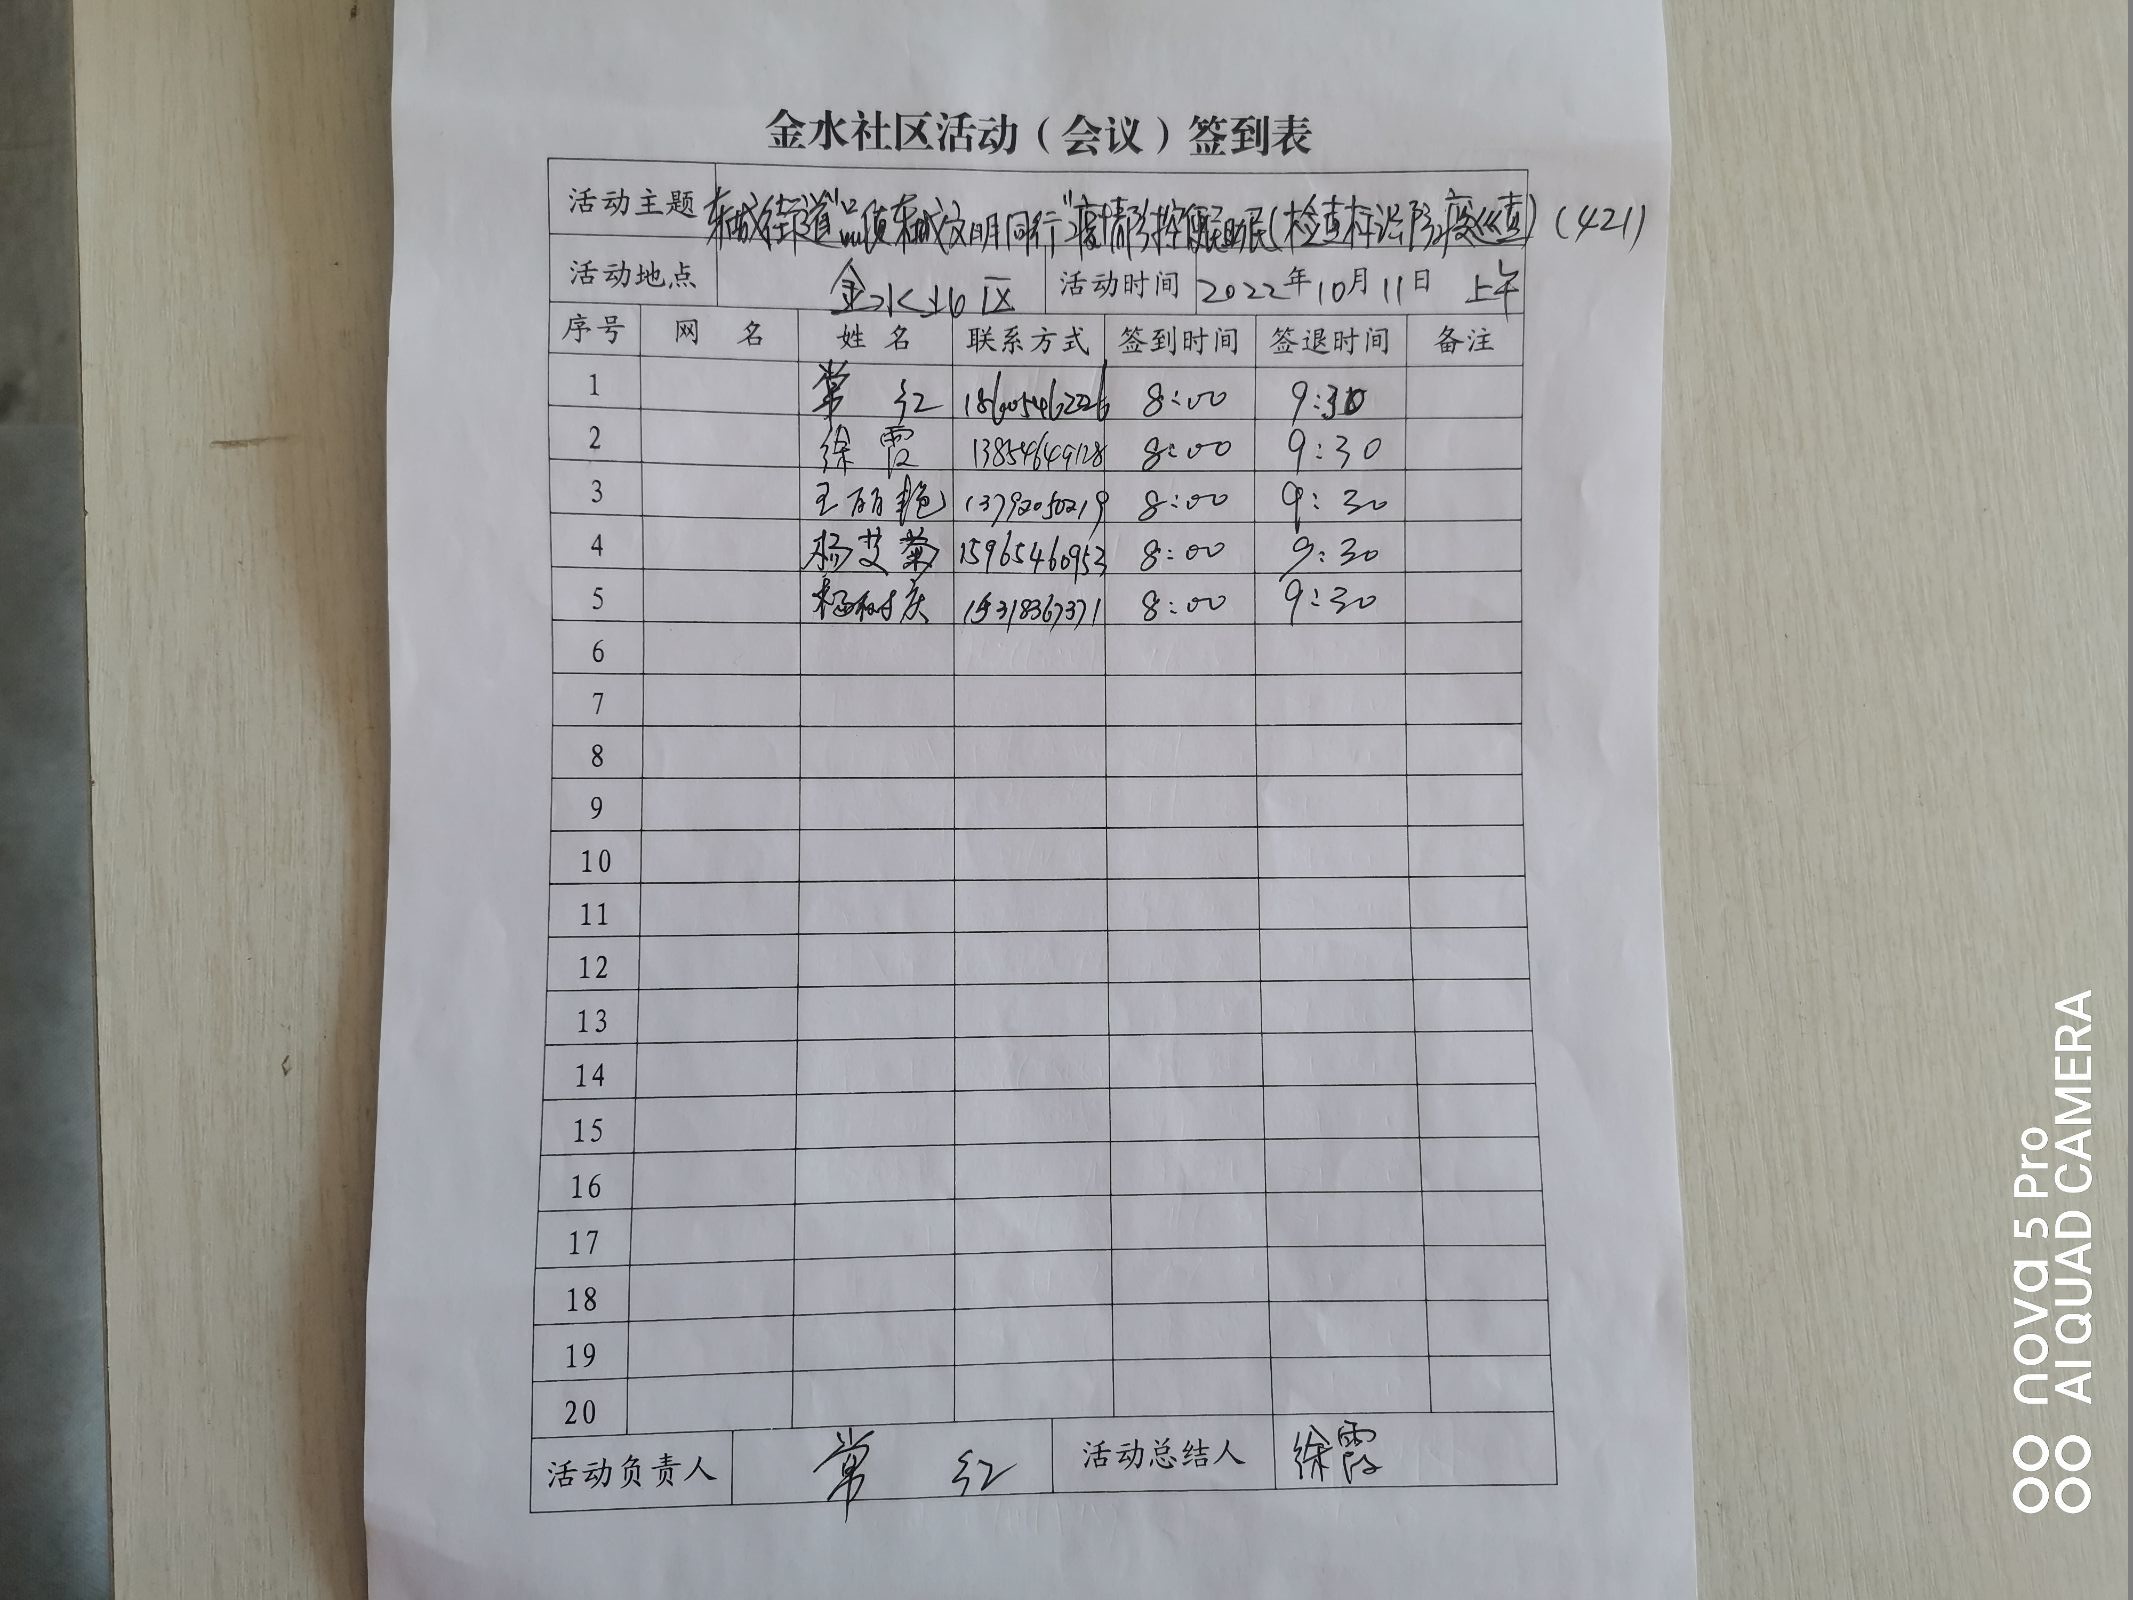 金水社区活动（会议）签到表
活动主题 东城街道"品质东城文明同行"疫情防控便民助民(检查标注防疫巡查)(421)
活动地点 金水北区 活动时间 2022年10月11日 上午
序号 网 名 姓 名 联系方式 签到时间 签退时间 备注
1 常 红 18605462226 8:00 9:30
2 徐霞 13854649128 8:00 9:30
3 王丽艳 13792050219 8:00 9:30
4 杨艾菊 15965460953 8:00 9:30
5 杨树庆 15318367371 8:00 9:30
6
7
8
9
10
11
12
13
14
15
16
17
18
19
20
活动负责人 常 红 活动总结人 徐霞
nova 5 Pro
AI QUAD CAMERA